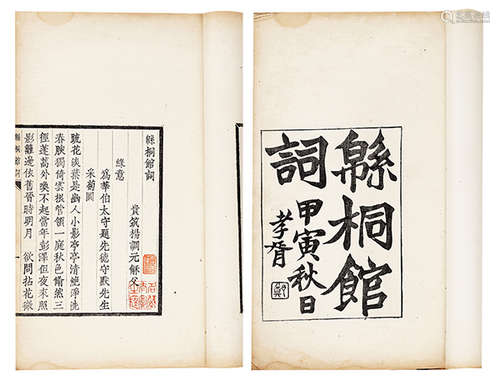 緜桐館
詞
甲寅秋日
孝胥
緜桐館詞
貴筑楊調元龢父
綠意
為華伯太守題先德守默先生
采菊圖
疏花淡蕋是幽人小影亭亭清絕淨洗
春腴獨倚雲根管領一庭秋色翛然三
徑蓬蒿外喚不起當年彭澤但夜來照
影籬邊依舊晉時明月 欲問拈花微
緜桐館詞
一